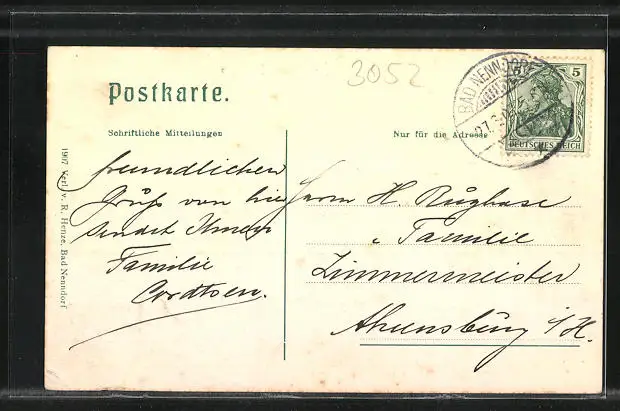 3052
Postkarte.
BAD NENNDORF
5
DEUTSCHES REICH
Schriftliche Mitteilungen
Nur für die Adresse
freundlichen
Gruß von hier
sendet Ihnen
Familie
Cordtsen.
Herrn H.
u Familie
Zimmermeister
Ahrensburg i/H.
1907 Verl. v. R. Henze, Bad Nenndorf